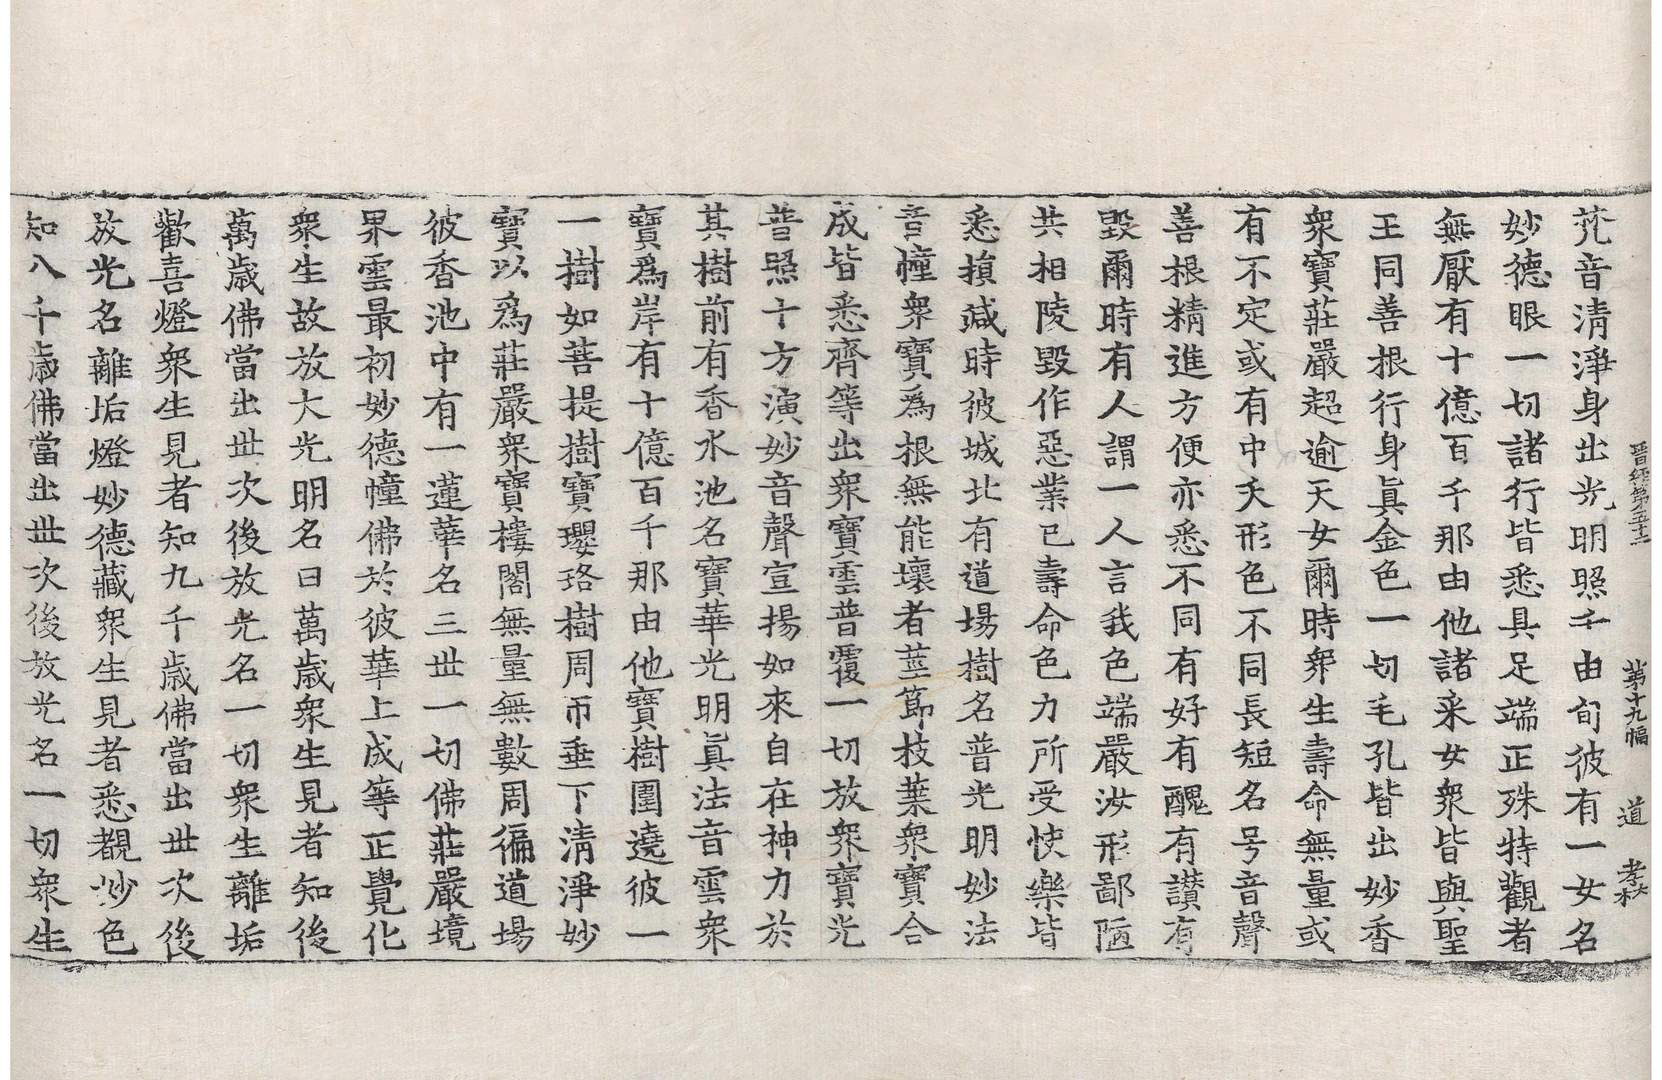 晋經第五十二 第十九幅 道 孝林
梵音清淨身出光明照千由旬彼有一女名
妙德眼一切諸行皆悉具足端正殊特觀者
無厭有十億百千那由他諸采女衆皆與聖
王同善根行身真金色一切毛孔皆出妙香
衆寶莊嚴超逾天女爾時衆生壽命無量或
有不定或有中夭形色不同長短名号音聲
善根精進方便亦悉不同有好有醜有讃有
毀爾時有人謂一人言我色端嚴汝形鄙陋
共相陵毀作惡業已壽命色力所受快樂皆
悉損減時彼城北有道場樹名普光明妙法
音幢衆寶爲根無能壞者莖節枝葉衆寶合
成皆悉齊等出衆寶雲普覆一切放衆寶光
普照十方演妙音聲宣揚如來自在神力於
其樹前有香水池名寶華光明真法音雲衆
寶爲岸有十億百千那由他寶樹圍遶彼一
一樹如菩提樹寶瓔珞樹周帀垂下清淨妙
寶以爲莊嚴衆寶樓閣無量無數周徧道場
彼香池中有一蓮華名三世一切佛莊嚴境
界雲最初妙德幢佛於彼華上成等正覺化
衆生故放大光明名曰萬歲衆生見者知後
萬歲佛當出世次後放光名一切衆生離垢
歡喜燈衆生見者知九千歲佛當出世次後
放光名離垢燈妙德藏衆生見者悉覩妙色
知八千歲佛當出世次後放光名一切衆生